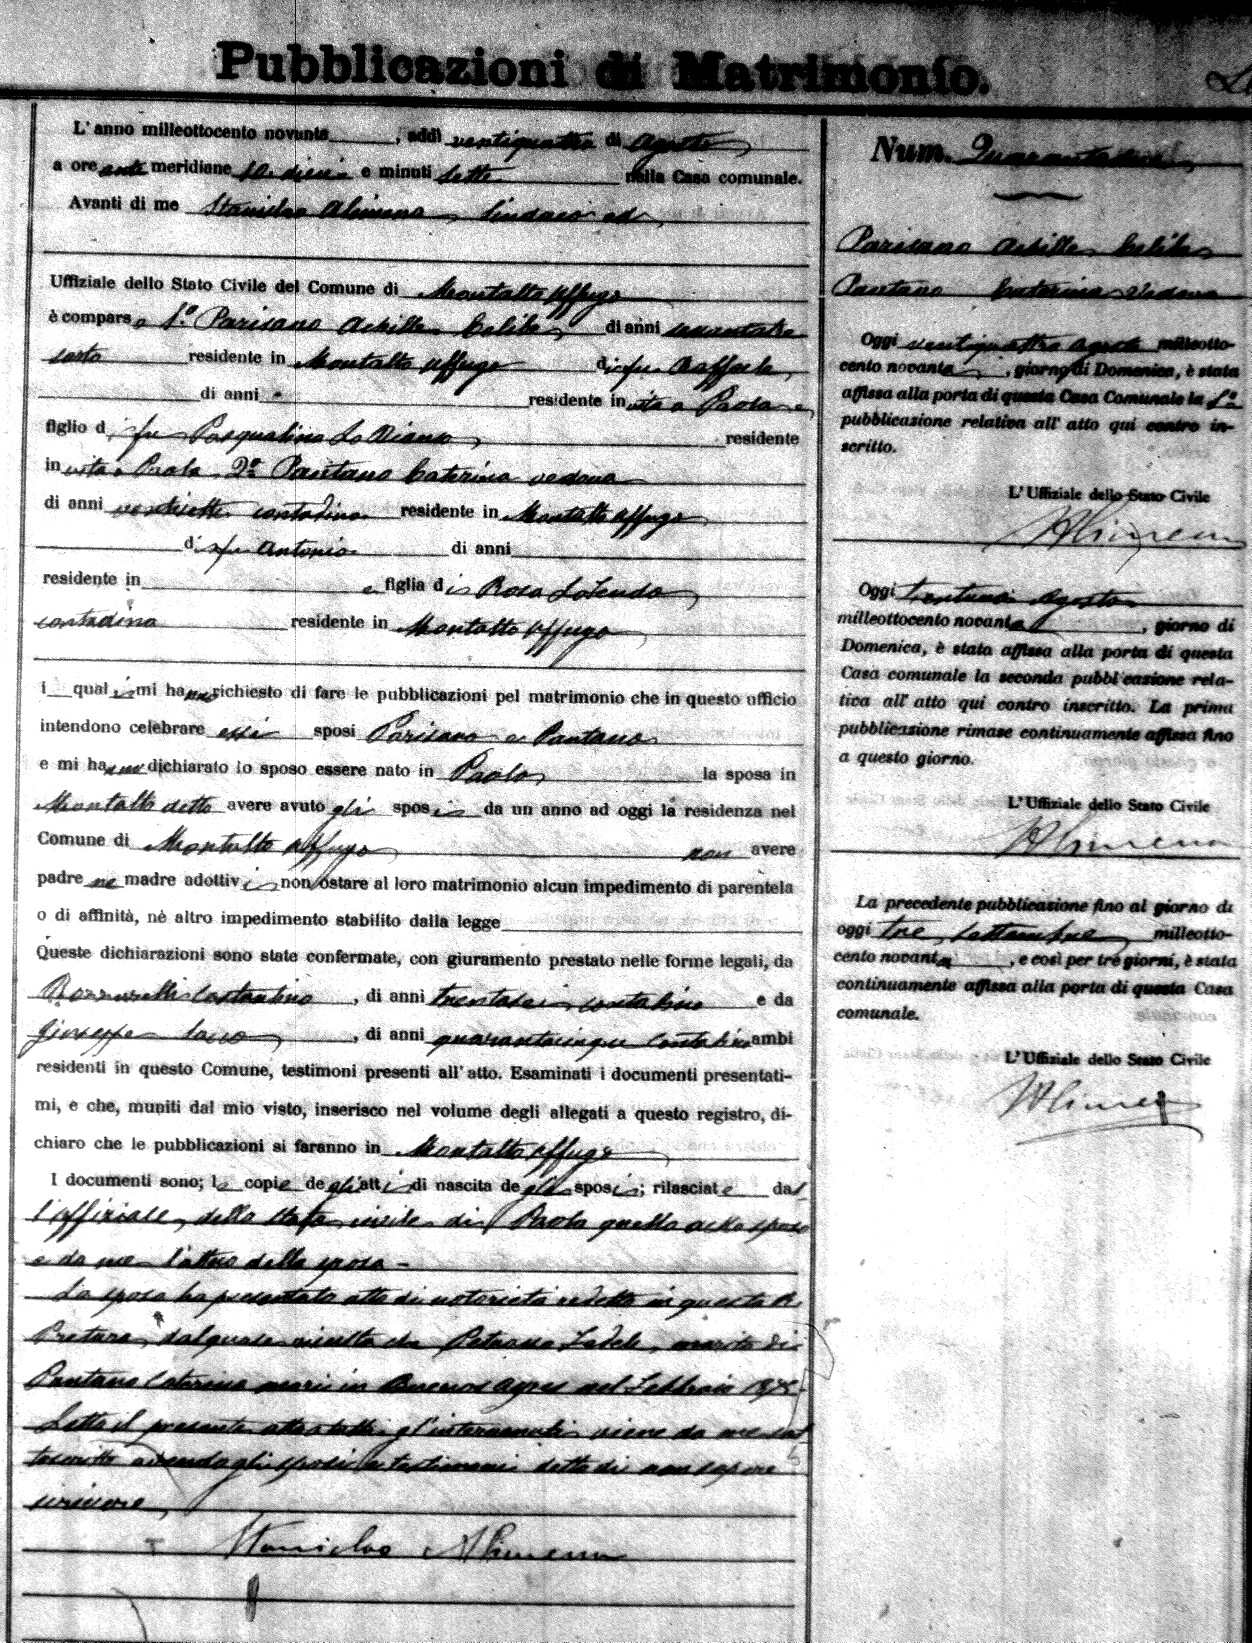 Pubblicazioni di Matrimonio.
L'anno milleottocento novanta, addì ventiquattro di Agosto
a ore ante meridiane 10. dieci e minuti sette nella Casa comunale.
Avanti di me Stanislao Alimena Sindaco ed
Uffiziale dello Stato Civile del Comune di Montalto Uffugo
è compars 1º Parisano Achille Celibe di anni
residente in Montalto Uffugo di fu Raffaele
di anni residente in vita a Paola e
figlio di fu Pasqualina Lo Piano residente
in vita a Paola 2º Pantano Caterina vedova
di anni ventisette contadina residente in Montalto Uffugo
di fu Antonio di anni
residente in e figlia di Rosa
contadina residente in Montalto Uffugo
i quali mi hanno richiesto di fare le pubblicazioni pel matrimonio che in questo ufficio
intendono celebrare essi sposi Parisano e Pantano
e mi hanno dichiarato lo sposo essere nato in Paola la sposa in
Montalto detto avere avuto gli sposi da un anno ad oggi la residenza nel
Comune di Montalto Uffugo non avere
padre ne madre adottivi non ostare al loro matrimonio alcun impedimento di parentela
o di affinità, nè altro impedimento stabilito dalla legge
Queste dichiarazioni sono state confermate, con giuramento prestato nelle forme legali, da
Costantino, di anni trentasei contadino e da
Giuseppe Sacco, di anni quarantacinque Contadino ambi
residenti in questo Comune, testimoni presenti all'atto. Esaminati i documenti presentati-
mi, e che, muniti dal mio visto, inserisco nel volume degli allegati a questo registro, di-
chiaro che le pubblicazioni si faranno in Montalto Uffugo
I documenti sono; le copie degli atti di nascita degli sposi; rilasciate dal
l'uffiziale dello stato civile di Paola quella dello sposo
e da me l'altra della sposa -
La sposa ha presentato atto di notorietà redatto in questa R.
Pretura, dal quale risulta che Fedele, marito di
Pantano Caterina morì in Buenos Ayres nel Febbraio
Letto il presente atto a tutti gl'intervenuti viene da me sot
toscritto avendo gli sposi e testimoni detto di non sapere
scrivere
Stanislao Alimena
Num. Quarantadue
Parisano Achille Celibe
Pantano Caterina Vedova
Oggi ventiquattro Agosto milleotto-
cento novanta, giorno di Domenica, è stata
affissa alla porta di questa Casa Comunale la 1ª
pubblicazione relativa all'atto qui contro in-
scritto.
L'Uffiziale dello Stato Civile
Alimena
Oggi trentuno Agosto
milleottocento novanta, giorno di
Domenica, è stata affissa alla porta di questa
Casa comunale la seconda pubblicazione rela-
tiva all'atto qui contro inscritto. La prima
pubblicazione rimase continuamente affissa fino
a questo giorno.
L'Uffiziale dello Stato Civile
Alimena
La precedente pubblicazione fino al giorno di
oggi tre Settembre milleotto-
cento novanta, e così per tre giorni, è stata
continuamente affissa alla porta di questa Casa
comunale.
L'Uffiziale dello Stato Civile
Alimena